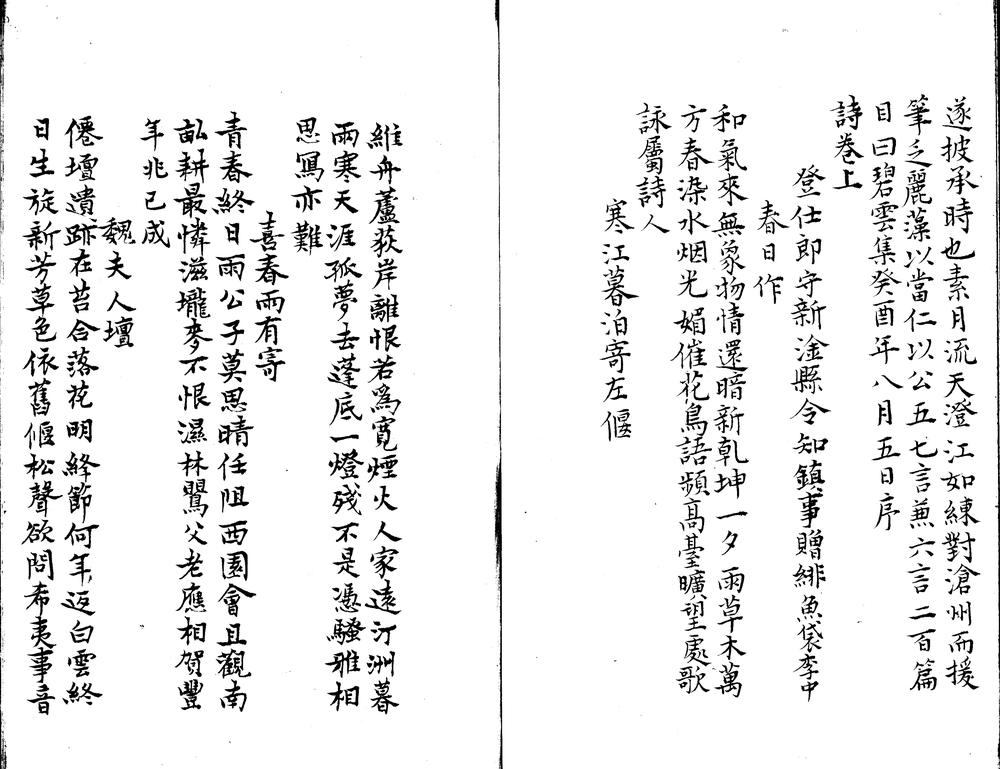 遂披承時也素月流天澄江如練對滄州而援
筆乏麗藻以當仁以公五七言兼六言二百篇
目曰碧雲集癸酉年八月五日序
詩卷上
登仕郎守新淦縣令知鎮事贈緋魚袋李中
春日作
和氣來無象物情還暗新乾坤一夕雨草木萬
方春染水烟光媚催花鳥語頻高臺曠望處歌
詠屬詩人
寒江暮泊寄左偃
維舟蘆荻岸離恨若為寛煙火人家遠汀洲暮
雨寒天涯孤夢去蓬底一燈殘不是憑騷雅相
思寫亦難
喜春雨有寄
青春終日雨公子莫思晴任阻西園會且觀南
畆耕最憐滋壠麥不恨濕林鸎父老應相賀豐
年兆已成
魏夫人壇
僊壇遺跡在苔合落花明絳節何年返白雲終
日生旋新芳草色依舊偃松聲欲問希夷事音